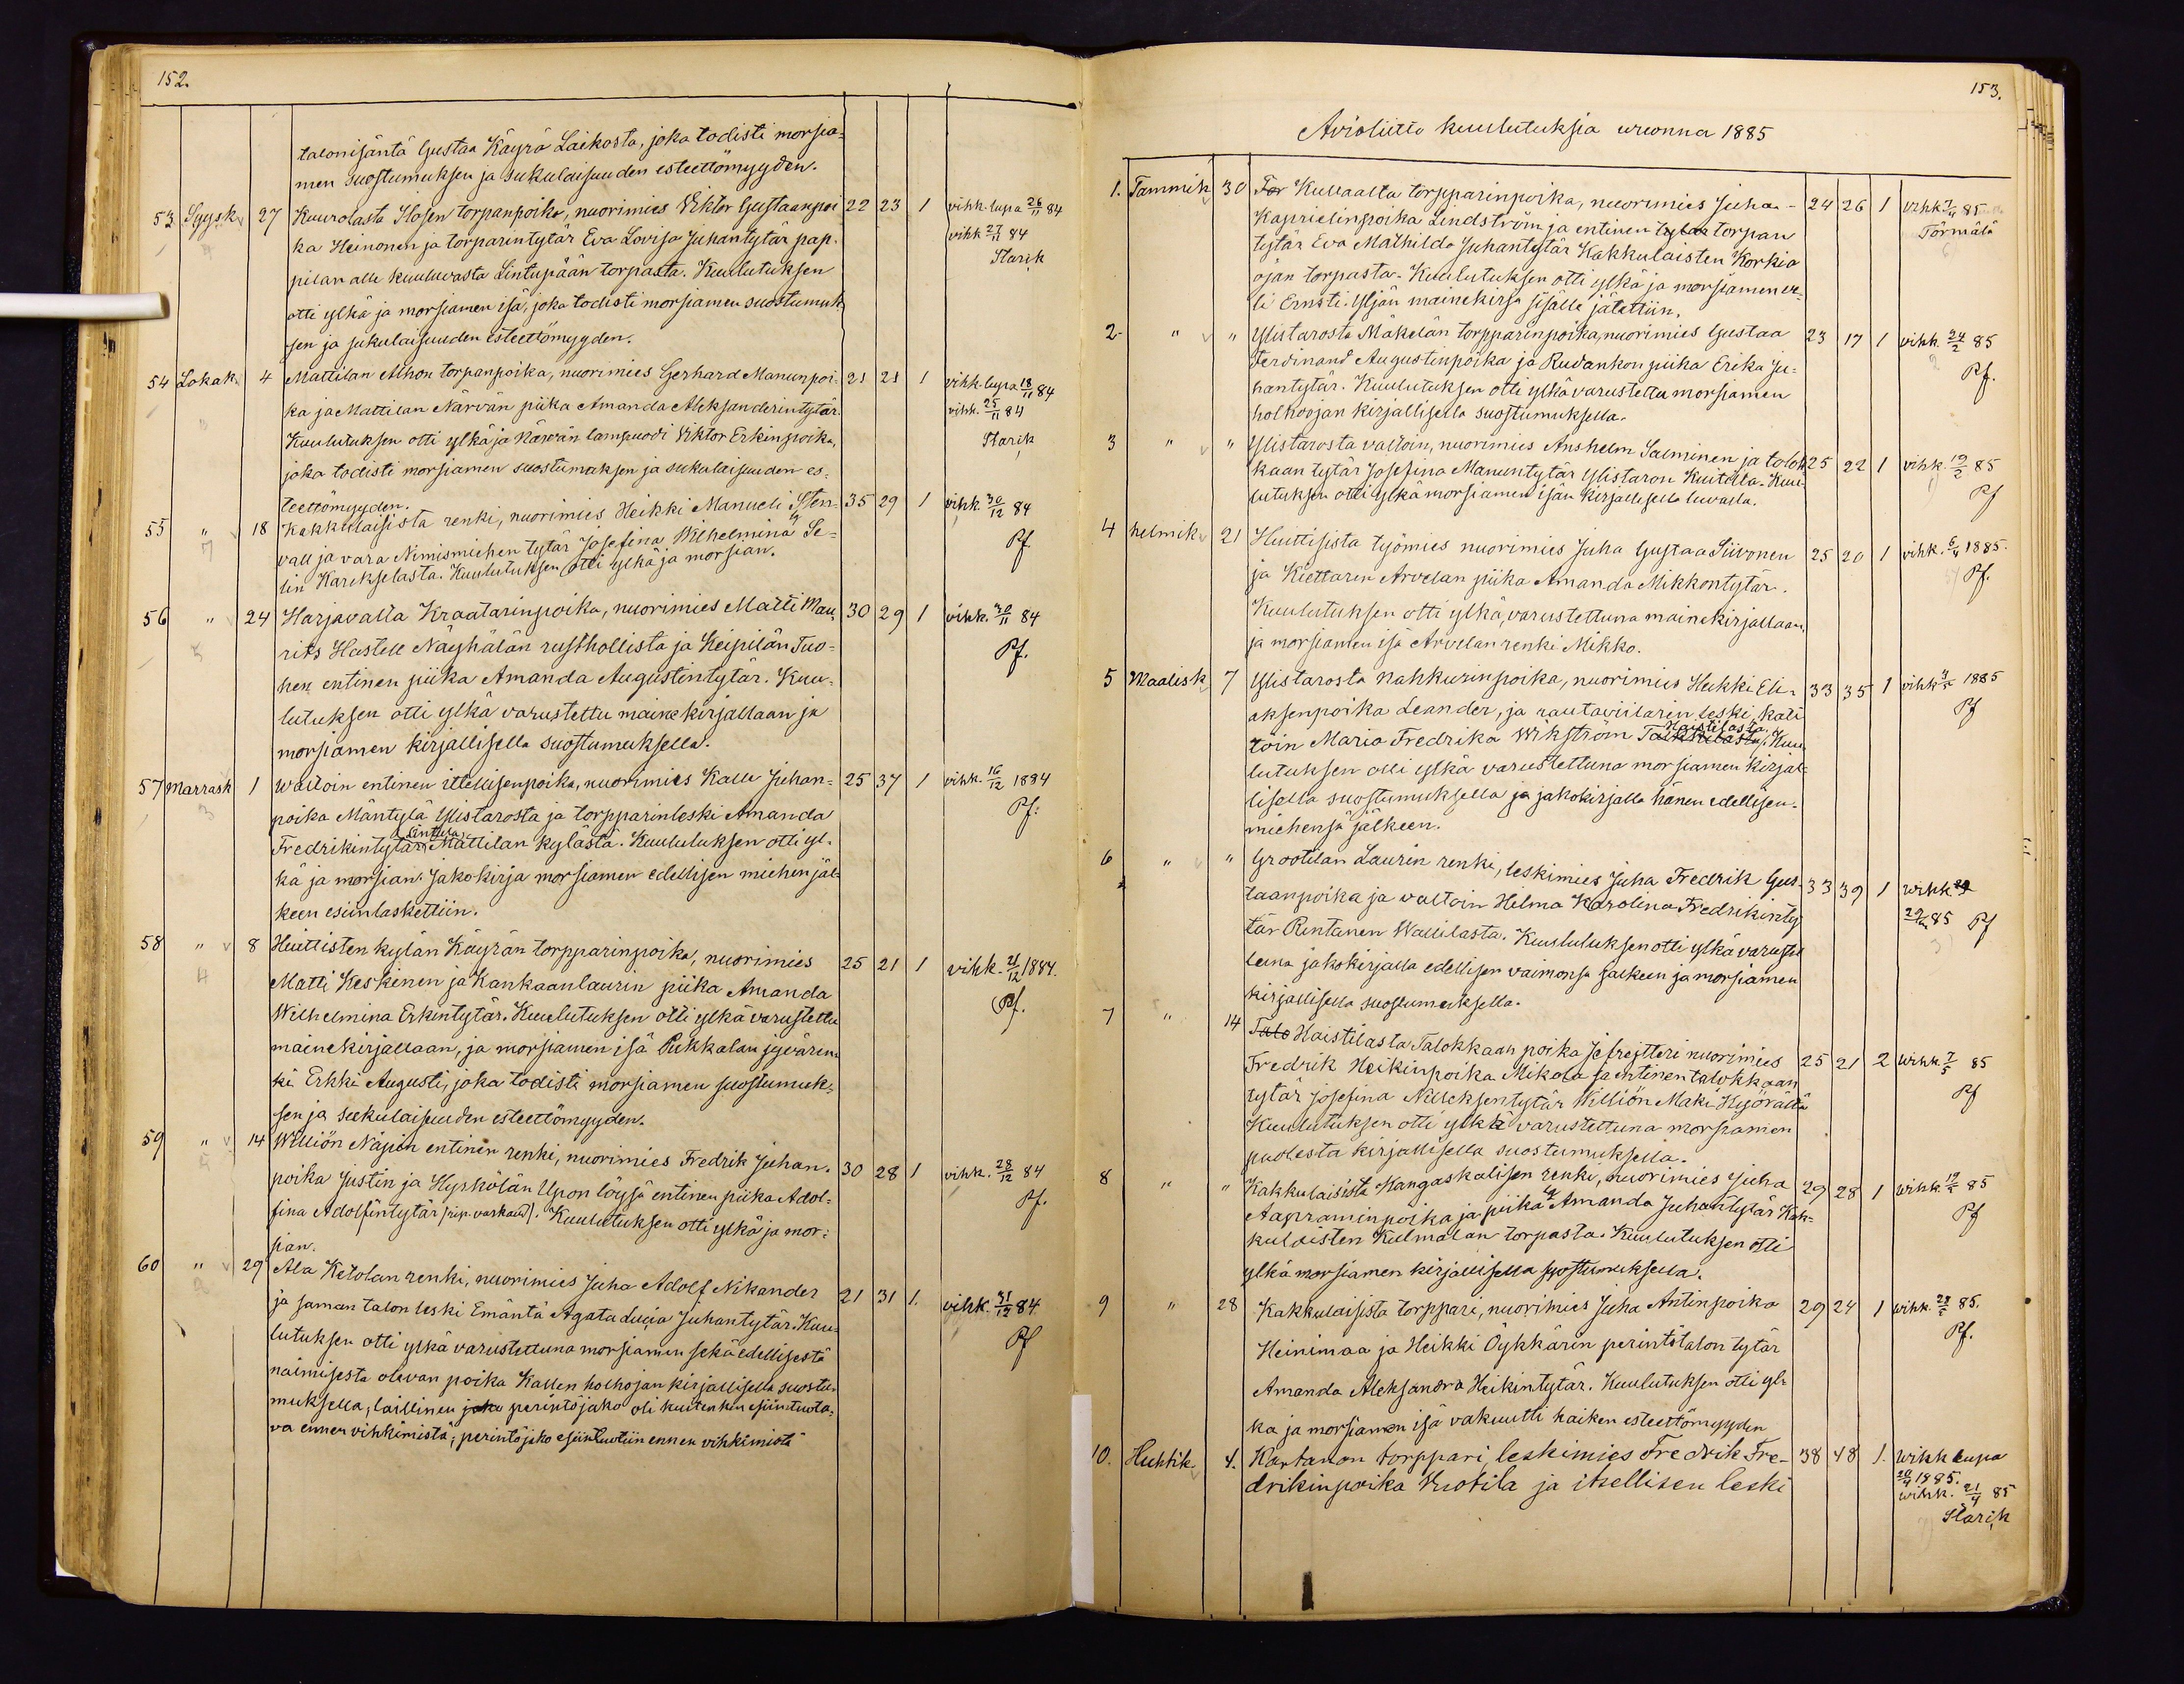 152.
talonisäntä Gustaa Käyrä Laikosta, joka todisti morsia-
men suostumuksen ja sukulaisuuden esteettömyyden.
53 Syysk. 27 Kuurolasta Ilosen torpanpoika, nuorimies Viktor Gustaanpoi 22 23 1 vihk.lupa 26/11 84
ka Heinonen ja torparintytär Eva Lovisa Juhantytär pap- vihk 27/11 84
pilan alle kuuluvasta Lintupään torpasta. Kuulutuksen Starik
otti ylkä ja morsiamen isä, joka todisti morsiamen suostumuk-
sen ja sukulaisuuden esteettömyyden.
54 Lokak. 4 Mattilan Alhon torpanpoika, nuorimies Gerhard Manunpoi- 21 21 1 vihk.lupa 18/11 84
ka ja Mattilan Närvän piika Amanda Aleksanderintytär. vihk. 25/11 84
Kuulutuksen otti ylkä ja Närvän lampuodi Viktor Erkinpoika, Starik
joka todisti morsiamen suostumuksen ja sukulaisuuden es-
teettömyyden.
55 " 18 Kakkulaisista renki, nuorimies Heikki Manueli Sten- 35 29 1 vihk. 30/12 84
vall ja vara Nimismiehen tytär Josefina Wilhelmina Se- Pf
lin Karekselasta. Kuulutuksen otti ylkä ja morsian.
56 " 24 Harjavalta Kraatarinpoika, nuorimies Matti Mau- 30 29 1 vihk. 30/11 84
rits Hastell Näyhälän rusthollista ja Keipilän Tuo- Pf.
hen entinen piika Amanda Augustintytär. Kuu-
lutuksen otti ylkä varustettu mainekirjallaan ja
morsiamen kirjallisella suostumuksella.
57 Marrask 1 Waltoin entinen ittellisenpoika, nuorimies Kalle Juhan- 25 37 1 vihk. 16/12 1884
poika Mäntylä Ylistarosta ja torpparinleski Amanda Pf.
Fredrikintytär Mattilan kylästä. Kuulutuksen otti yl-
kä ja morsian. Jakokirja morsiamen edellisen miehen jäl-
keen esiinlaskettiin.
58 " 8 Huittisten kylän Käyrän torpparinpoika, nuorimies 25 21 1 vihk. 21/12 1884.
Matti Keskinen ja Kankaanlaurin piika Amanda Pf.
Wilhelmina Erkintytär. Kuulutuksen otti ylkä varustettu
mainekirjallaan, ja morsiamen isä Pukkalan jyvären-
ki Erkki Augusti, joka todisti morsiamen suostumuk-
sen ja sukulaisuuden esteettömyyden.
59 " 14 Williön Näpin entinen renki, nuorimies Fredrik Juhan- 30 28 1 vihk. 28/12 84
poika Justin ja Hyrkölän Upon löysä entinen piika Adol- Pf.
fina Adolfintytär. Kuulutuksen otti ylkä ja mor-
sian.
60 " 29 Ala Ketolan renki, nuorimies Juha Adolf Nikander 21 31 1. vihk. 31/12 84
ja saman talon leski Emäntä Agata Juhantytär. Kuu- Pf
lutuksen otti ylkä varustettuna morsiamen sekä edellisestä
naimisesta olevan poika Kallen holhojan kirjallisella suostu-
muksella; laillinen jako perintöjako oli kuitenkin esiintuota-
va ennen vihkimistä; perintöjako esiintuotiin ennen vihkimistä
153.
Avioliitto kuulutuksia vuonna 1885
1. Tammik 30 Tor Kullaalta torpparinpoika, nuorimies Juha- 24 26 1 vihk 7/4 85
Kaprielinpoika Lindström ja entinen tytär torpan Törmälä
tytär Eva Mathilda Juhantytär Kakkulaisten Korkia
ojan torpasta. Kuulutuksen otti ylkä ja morsiamen ve-
li Ernsti. Yljän mainekirja sisälle jätettiin.
2 " " Ylistarosta Mäkelän torpparinpoika, nuorimies Gustaa 23 17 1 vihk. 24/2 85
Ferdinand Augustinpoika ja Rudankon piika Erika Ju- Pf.
hantytär. Kuulutuksen otti ylkä varustettu morsiamen
holhoojan kirjallisella suostumuksella.
3 " " Ylistarosta valtoin, nuorimies Anshelm Salminen ja talok 25 22 1 vihk. 19/2 85
kaan tytär Josefina Manuntytär Ylistaron Kuitilla. Kuu- Pf
lutuksen otti ylkä morsiamen isän kirjallisella luvalla.
4 helmik 21 Huittisista työmies nuorimies Juha Gustaa Siivonen 25 20 1 vihk. 6/4 1885.
ja Kiettaren Arvelan piika Amanda Mikkontytär. Pf.
Kuulutuksen otti ylkä, varustettuna mainekirjallaan,
ja morsiamen isä Arvelan renki Mikko.
5 Maalisk 7 Ylistarosta nahkurinpoika, nuorimies Heikki Eli- 33 35 1 vihk 1885
aksenpoika Leander, ja rautaviilarin leski, kali Pf
Haistilasta
toin Maria Fredrika Wikström. Kuu-
lutuksen otti ylkä varustettuna morsiamen kirjal-
lisella suostumuksella ja jakokirjalla hänen edellisen
miehensä jälkeen.
6 " " Grootilan Laurin renki, leskimies Juha Fredrik Gus- 33 39 1 vihk
taanpoika ja valtoin Helma Karolina Fredrikinty 85 Pf
tär Rintanen Wallilasta. Kuulutuksen otti ylkä varustet
tuna jakokirjalla edellisen vaimonsa jälkeen ja morsiamen
kirjallisella suostumuksella.
7 " 14 Talo Haistilasta Talokkaan poika Jefreitteri nuorimies 25 21 2 wihk. 7/5 85
Fredrik Heikinpoika Mikola ja entinen talokkaan Pf
tytär Josefina Williön Maki Hyörältä
Kuulutuksen otti ylkä varustettuna morsiamen
puolesta kirjallisella suostumuksella.
8 " " Kakkulaisista Kangaskalisen renki, nuorimies Juha 29 28 1 wihk. 85
Aapraminpoika ja piika Amanda Juhantytär Kak- Pf
kulaisten Kulmalan torpasta. Kuulutuksen otti
ylkä morsiamen kirjallisella suostumuksella.
9 " 28 Kakkulaisista torppari, nuorimies Juha Antinpoika 29 24 1 vihk. 85.
Heinimaa ja Heikki Öykkärin perintötalon tytär Pf.
Amanda Aleksandra Heikintytär. Kuulutuksen otti yl-
kä ja morsiamen isä vakuutti kaiken esteettömyyden
10. Huhtik. 4. Kartanon torppari, leskimies Fredrik Fre- 38 48 1. Wihk lupa
drikinpoika Knotila ja itsellisen leski 20/4 1885.
wihk. 21/4 85
Starik